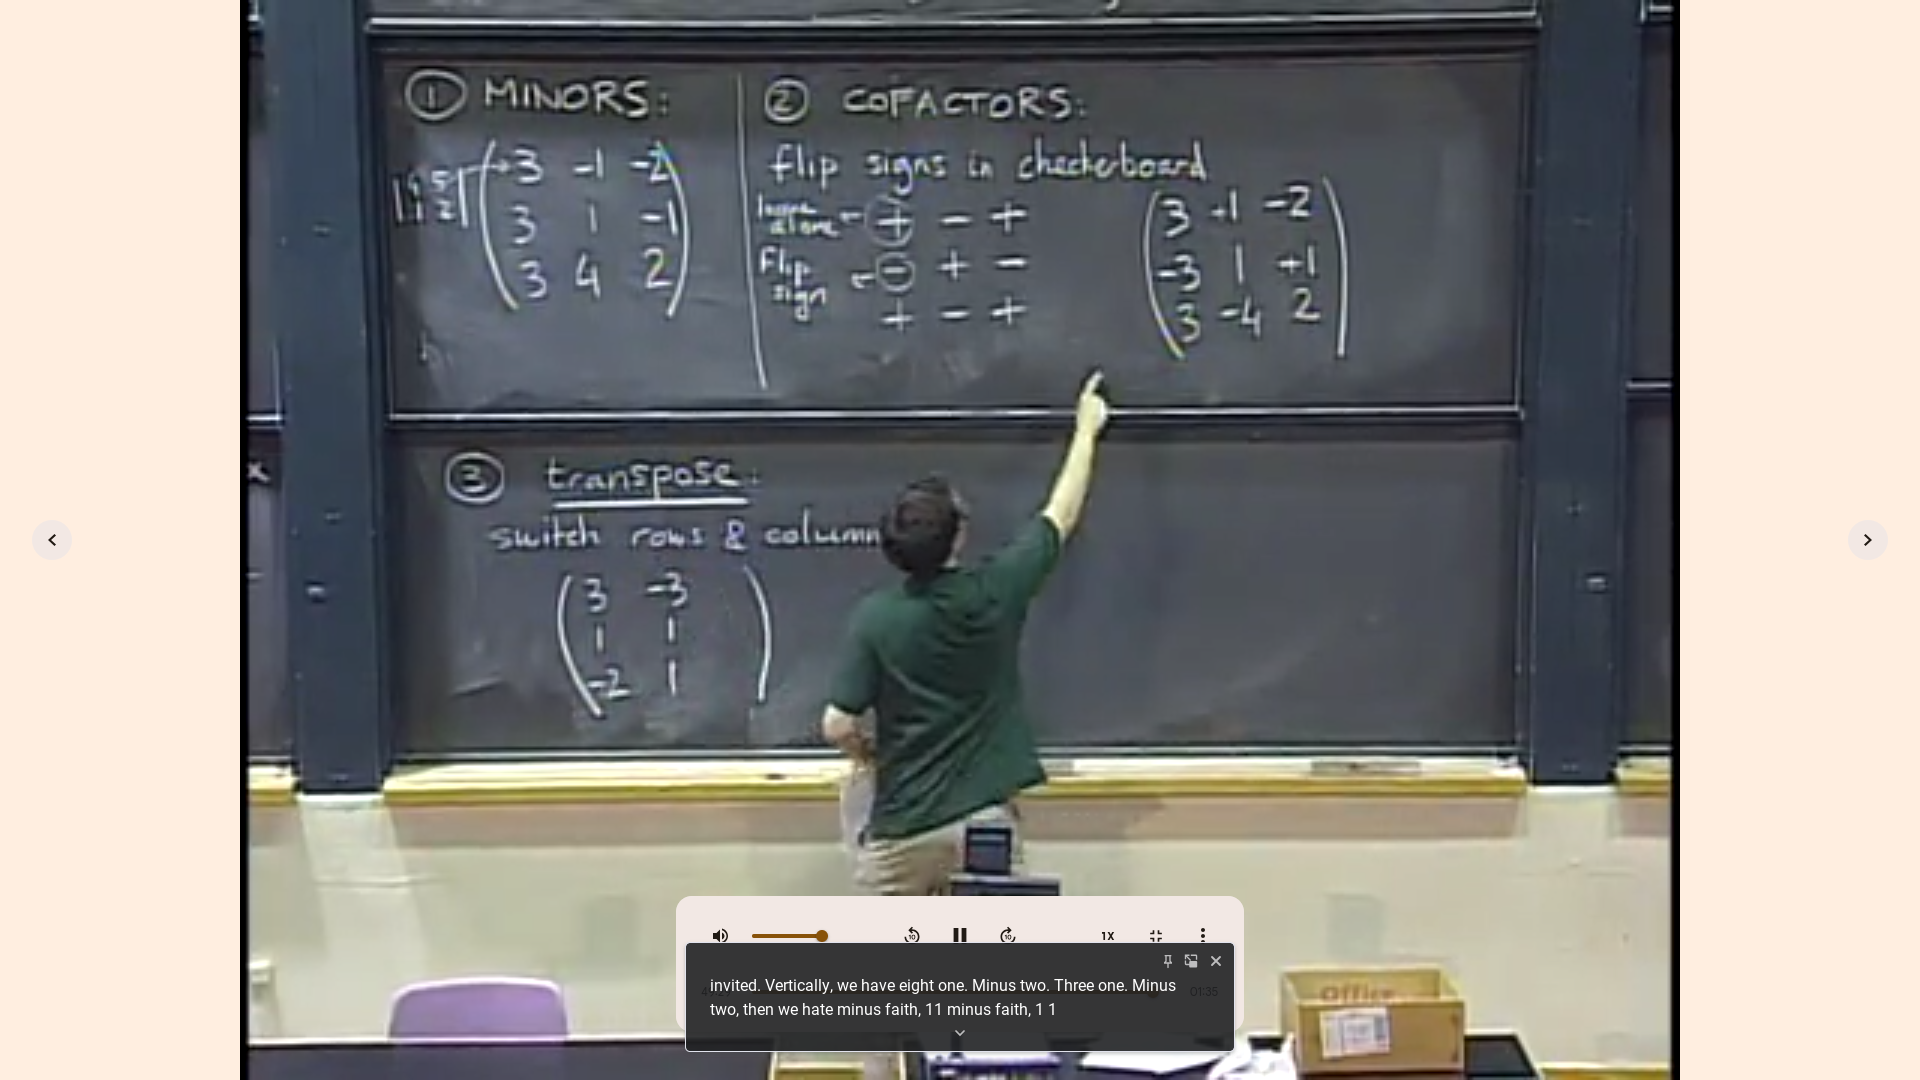 ① MINORS:
3 -1 -2
3 1 -1
3 4 2
② COFACTORS:
flip signs in checkerboard
leave alone ← + - +
flip sign ← - + -
+ - +
3 +1 -2
-3 1 +1
3 -4 2
③ transpose:
switch rows & column
3 -3
1 1
-2 1
x
Office
1X
01:35
invited. Vertically, we have eight one. Minus two. Three one. Minus
two, then we hate minus faith, 11 minus faith, 1 1